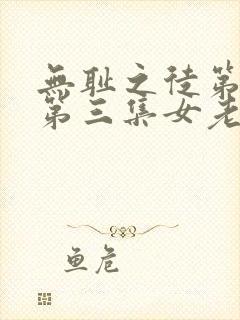 無耻之徒第
第三集女老
鱼危